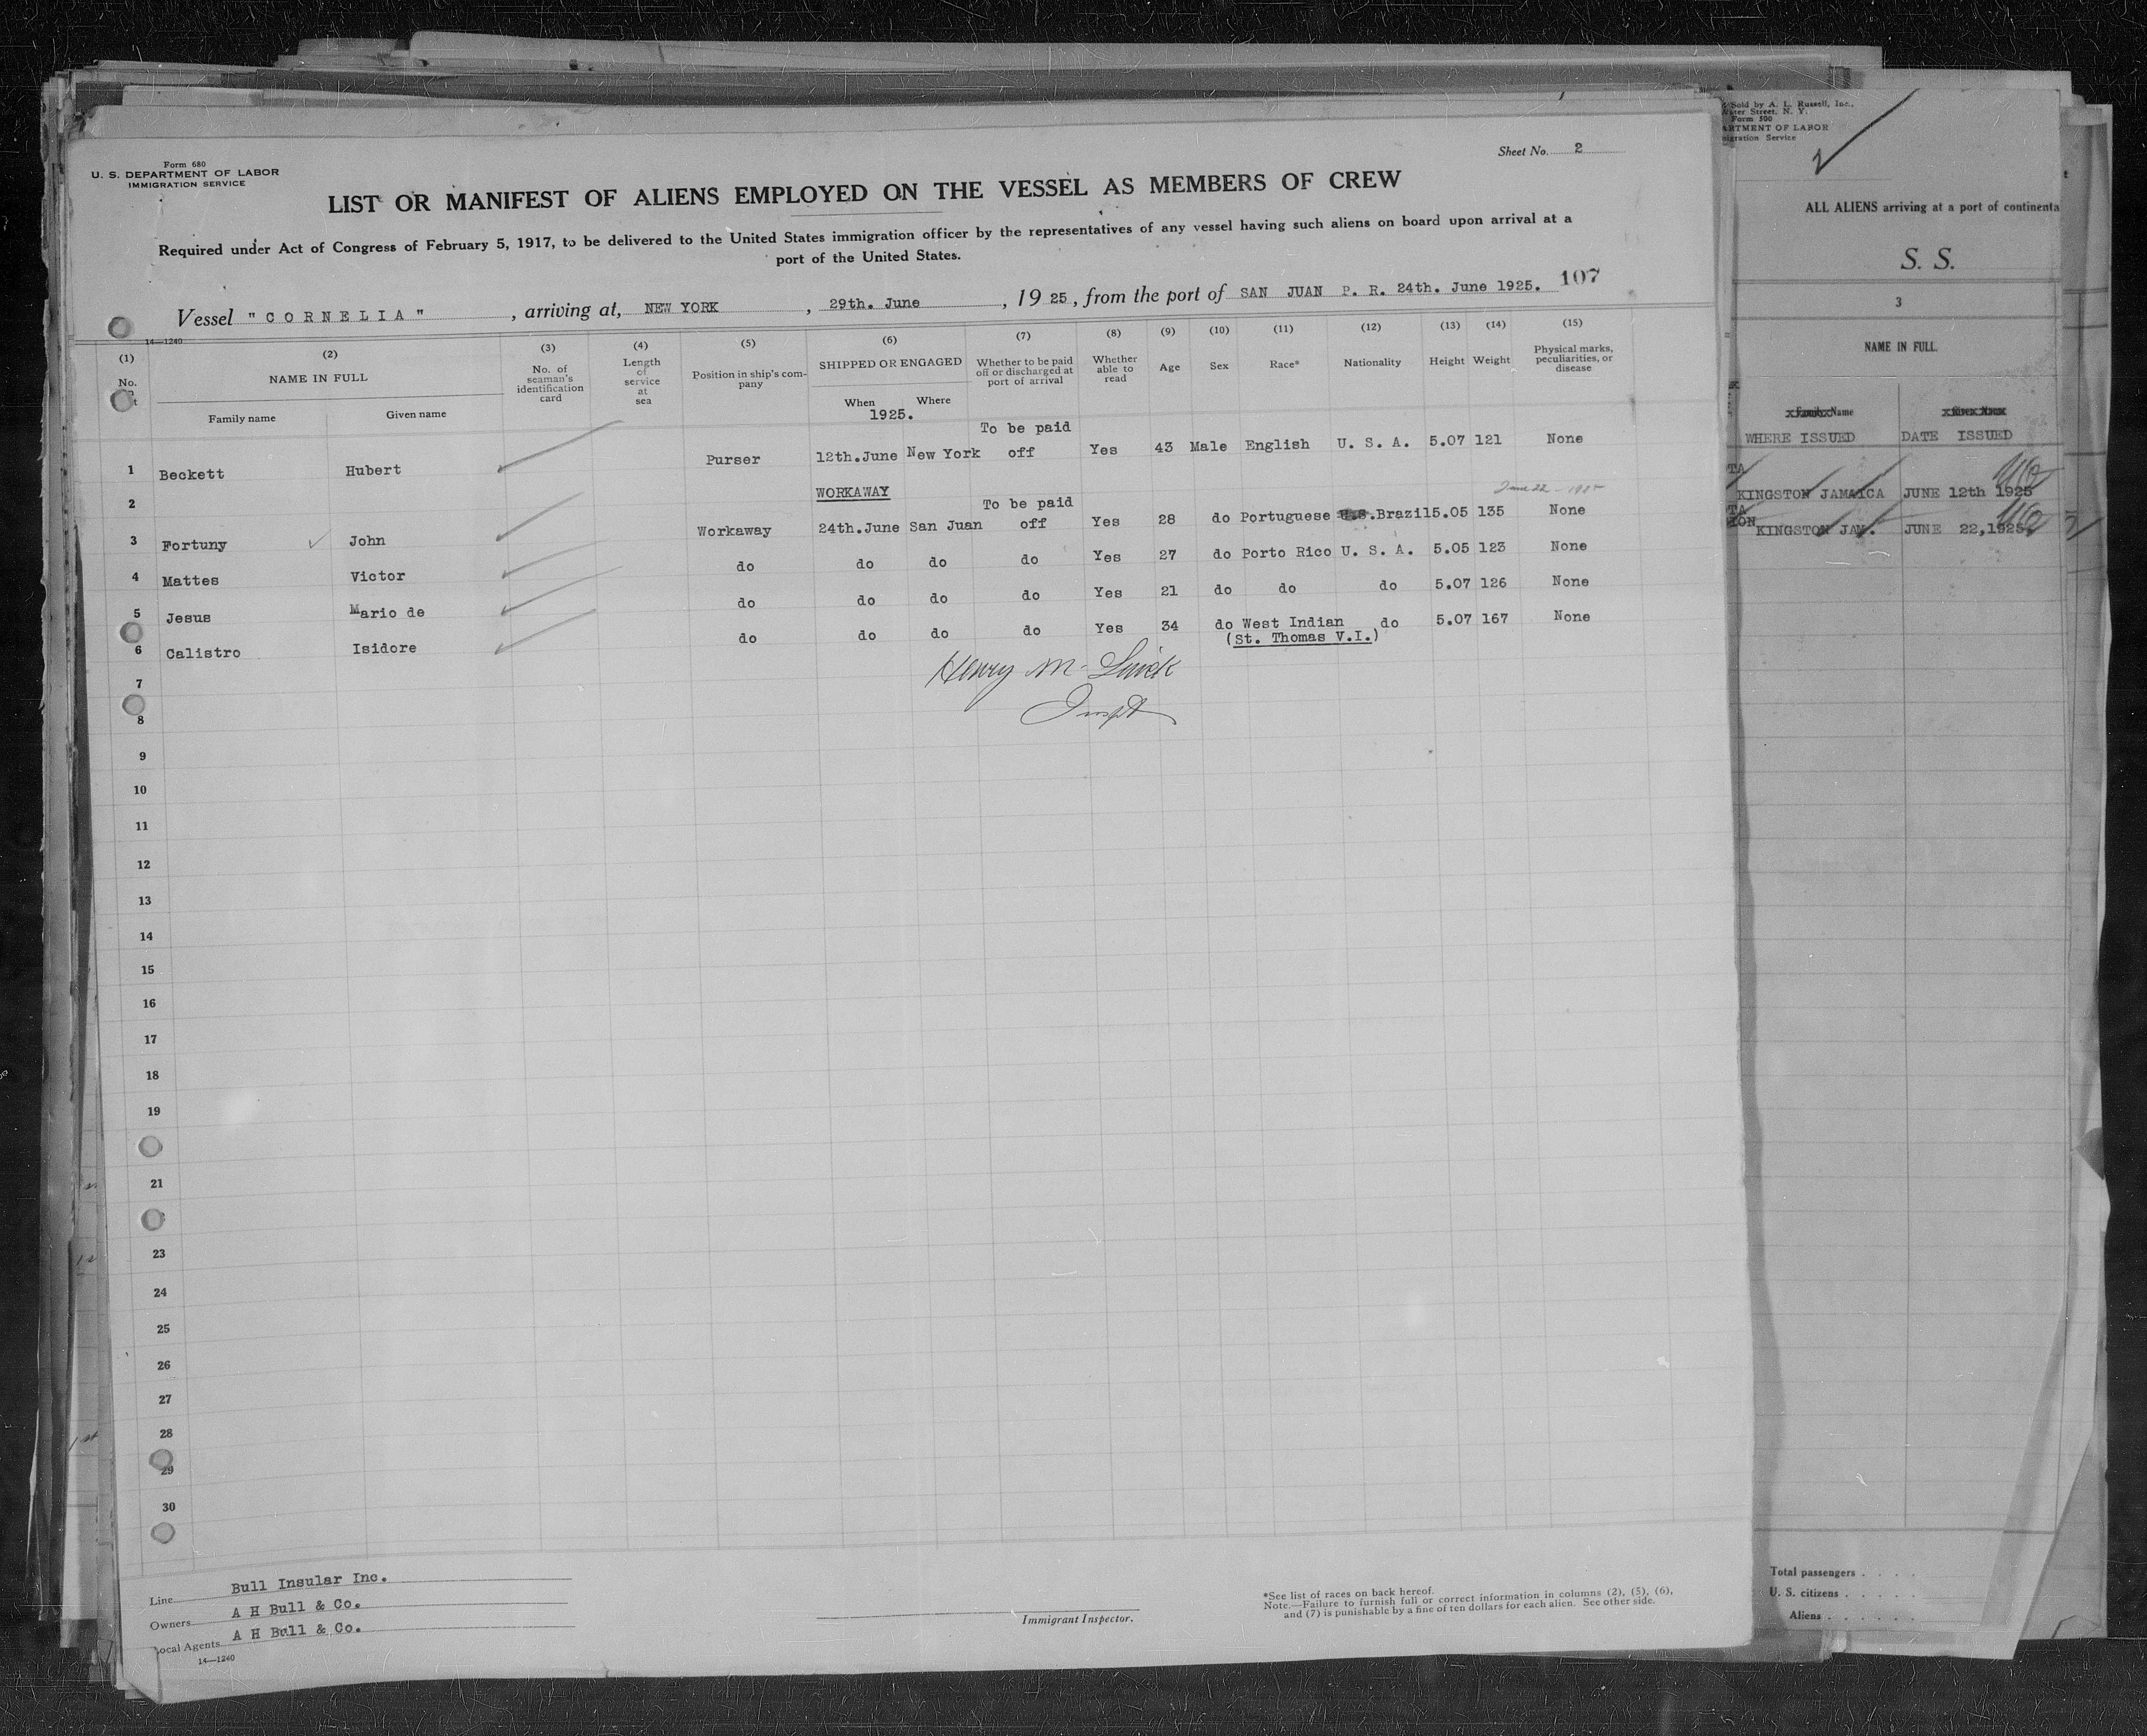 Form 680
U. S. DEPARTMENT OF LABOR
IMMIGRATION SERVICE
Sheet No. 2
LIST OR MANIFEST OF ALIENS EMPLOYED ON THE VESSEL AS MEMBERS OF CREW
Required under Act of Congress of February 5, 1917, to be delivered to the United States immigration officer by the representatives of any vessel having such aliens on board upon arrival at a
port of the United States.
107
Vessel " C O R N E L I A " , arriving at, NEW YORK , 29th. June , 19 25 , from the port of SAN JUAN P. R. 24th. June 1925.
14—1240
(1) (2) (3) (4) (5) (6) (7) (8) (9) (10) (11) (12) (13) (14) (15)
No.
NAME IN FULL
Family name Given name
No. of
seaman's
identification
card
Length
of
service
at
sea
Position in ship's com-
pany
SHIPPED OR ENGAGED
When Where
1925.
Whether to be paid
off or discharged at
port of arrival
Whether
able to
read
Age
Sex
Race*
Nationality
Height
Weight
Physical marks,
peculiarities, or
disease
To be paid
1 Beckett Hubert Purser 12th.June New York off Yes 43 Male English U. S. A. 5.07 121 None
2 WORKAWAY To be paid June 22 - 1925
3 Fortuny John Workaway 24th.June San Juan off Yes 28 do Portuguese U.S.Brazil 5.05 135 None
4 Mattes Victor do do do do Yes 27 do Porto Rico U. S. A. 5.05 123 None
5 Jesus Mario de do do do do Yes 21 do do do 5.07 126 None
6 Calistro Isidore do do do do Yes 34 do West Indian do 5.07 167 None
(St. Thomas V.I.)
7
Henry M.
Inspt
8
9
10
11
12
13
14
15
16
17
18
19
21
23
24
25
26
27
28
29
30
Line Bull Insular Inc.
Owners A H Bull & Co.
Local Agents A H Bull & Co.
14—1240
Immigrant Inspector.
*See list of races on back hereof.
Note.—Failure to furnish full or correct information in columns (2), (5), (6),
and (7) is punishable by a fine of ten dollars for each alien. See other side.
Sold by A. L. Russell, Inc.,
Water Street, N. Y.
Form 500
ARTMENT OF LABOR
migration Service
ALL ALIENS arriving at a port of continenta
S. S.
3
NAME IN FULL
Family Name
WHERE ISSUED DATE ISSUED
KINGSTON JAMAICA JUNE 12th 1925
KINGSTON JAM. JUNE 22,1925.
Total passengers . . . .
U. S. citizens . . . . .
Aliens . . . . . .